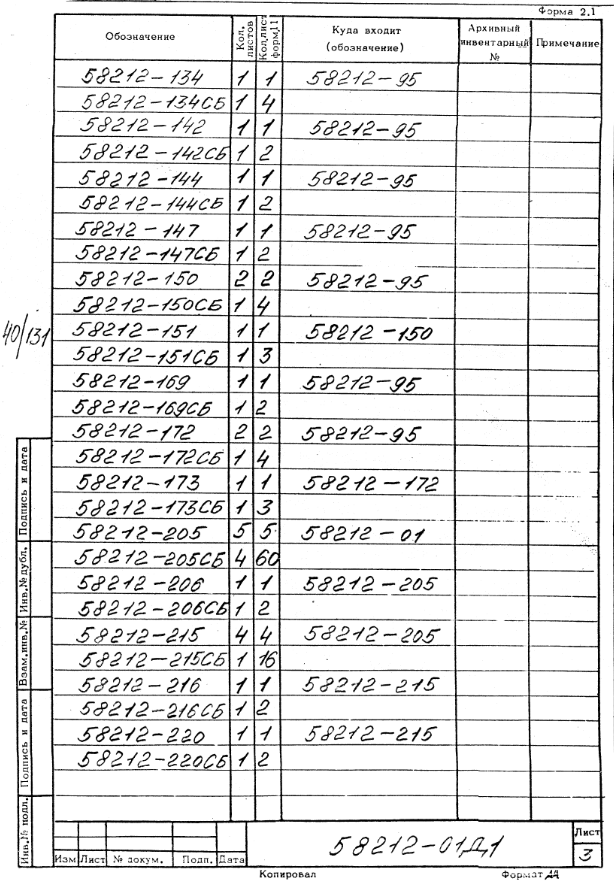 Форма 2.1
Обозначение Кол. листов Кол.лист форм.11 Куда входит (обозначение) Архивный инвентарный № Примечание
58212-134 1 1 58212-95
58212-134СБ 1 4
58212-142 1 1 58212-95
58212-142СБ 1 2
58212-144 1 1 58212-95
58212-144СБ 1 2
58212-147 1 1 58212-95
58212-147СБ 1 2
58212-150 2 2 58212-95
58212-150СБ 1 4
58212-151 1 1 58212-150
58212-151СБ 1 3
58212-169 1 1 58212-95
58212-169СБ 1 2
58212-172 2 2 58212-95
58212-172СБ 1 4
58212-173 1 1 58212-172
58212-173СБ 1 3
58212-205 5 5 58212-01
58212-205СБ 4 60
58212-206 1 1 58212-205
58212-206СБ 1 2
58212-215 4 4 58212-205
58212-215СБ 1 16
58212-216 1 1 58212-215
58212-216СБ 1 2
58212-220 1 1 58212-215
58212-220СБ 1 2
40/131
Подпись и дата
Инв.№ дубл.
Взам.инв.№
Подпись и дата
Инв.№ подл.
Изм Лист № докум. Подп. Дата
58212-01Д1
Лист
3
Копировал Формат А4